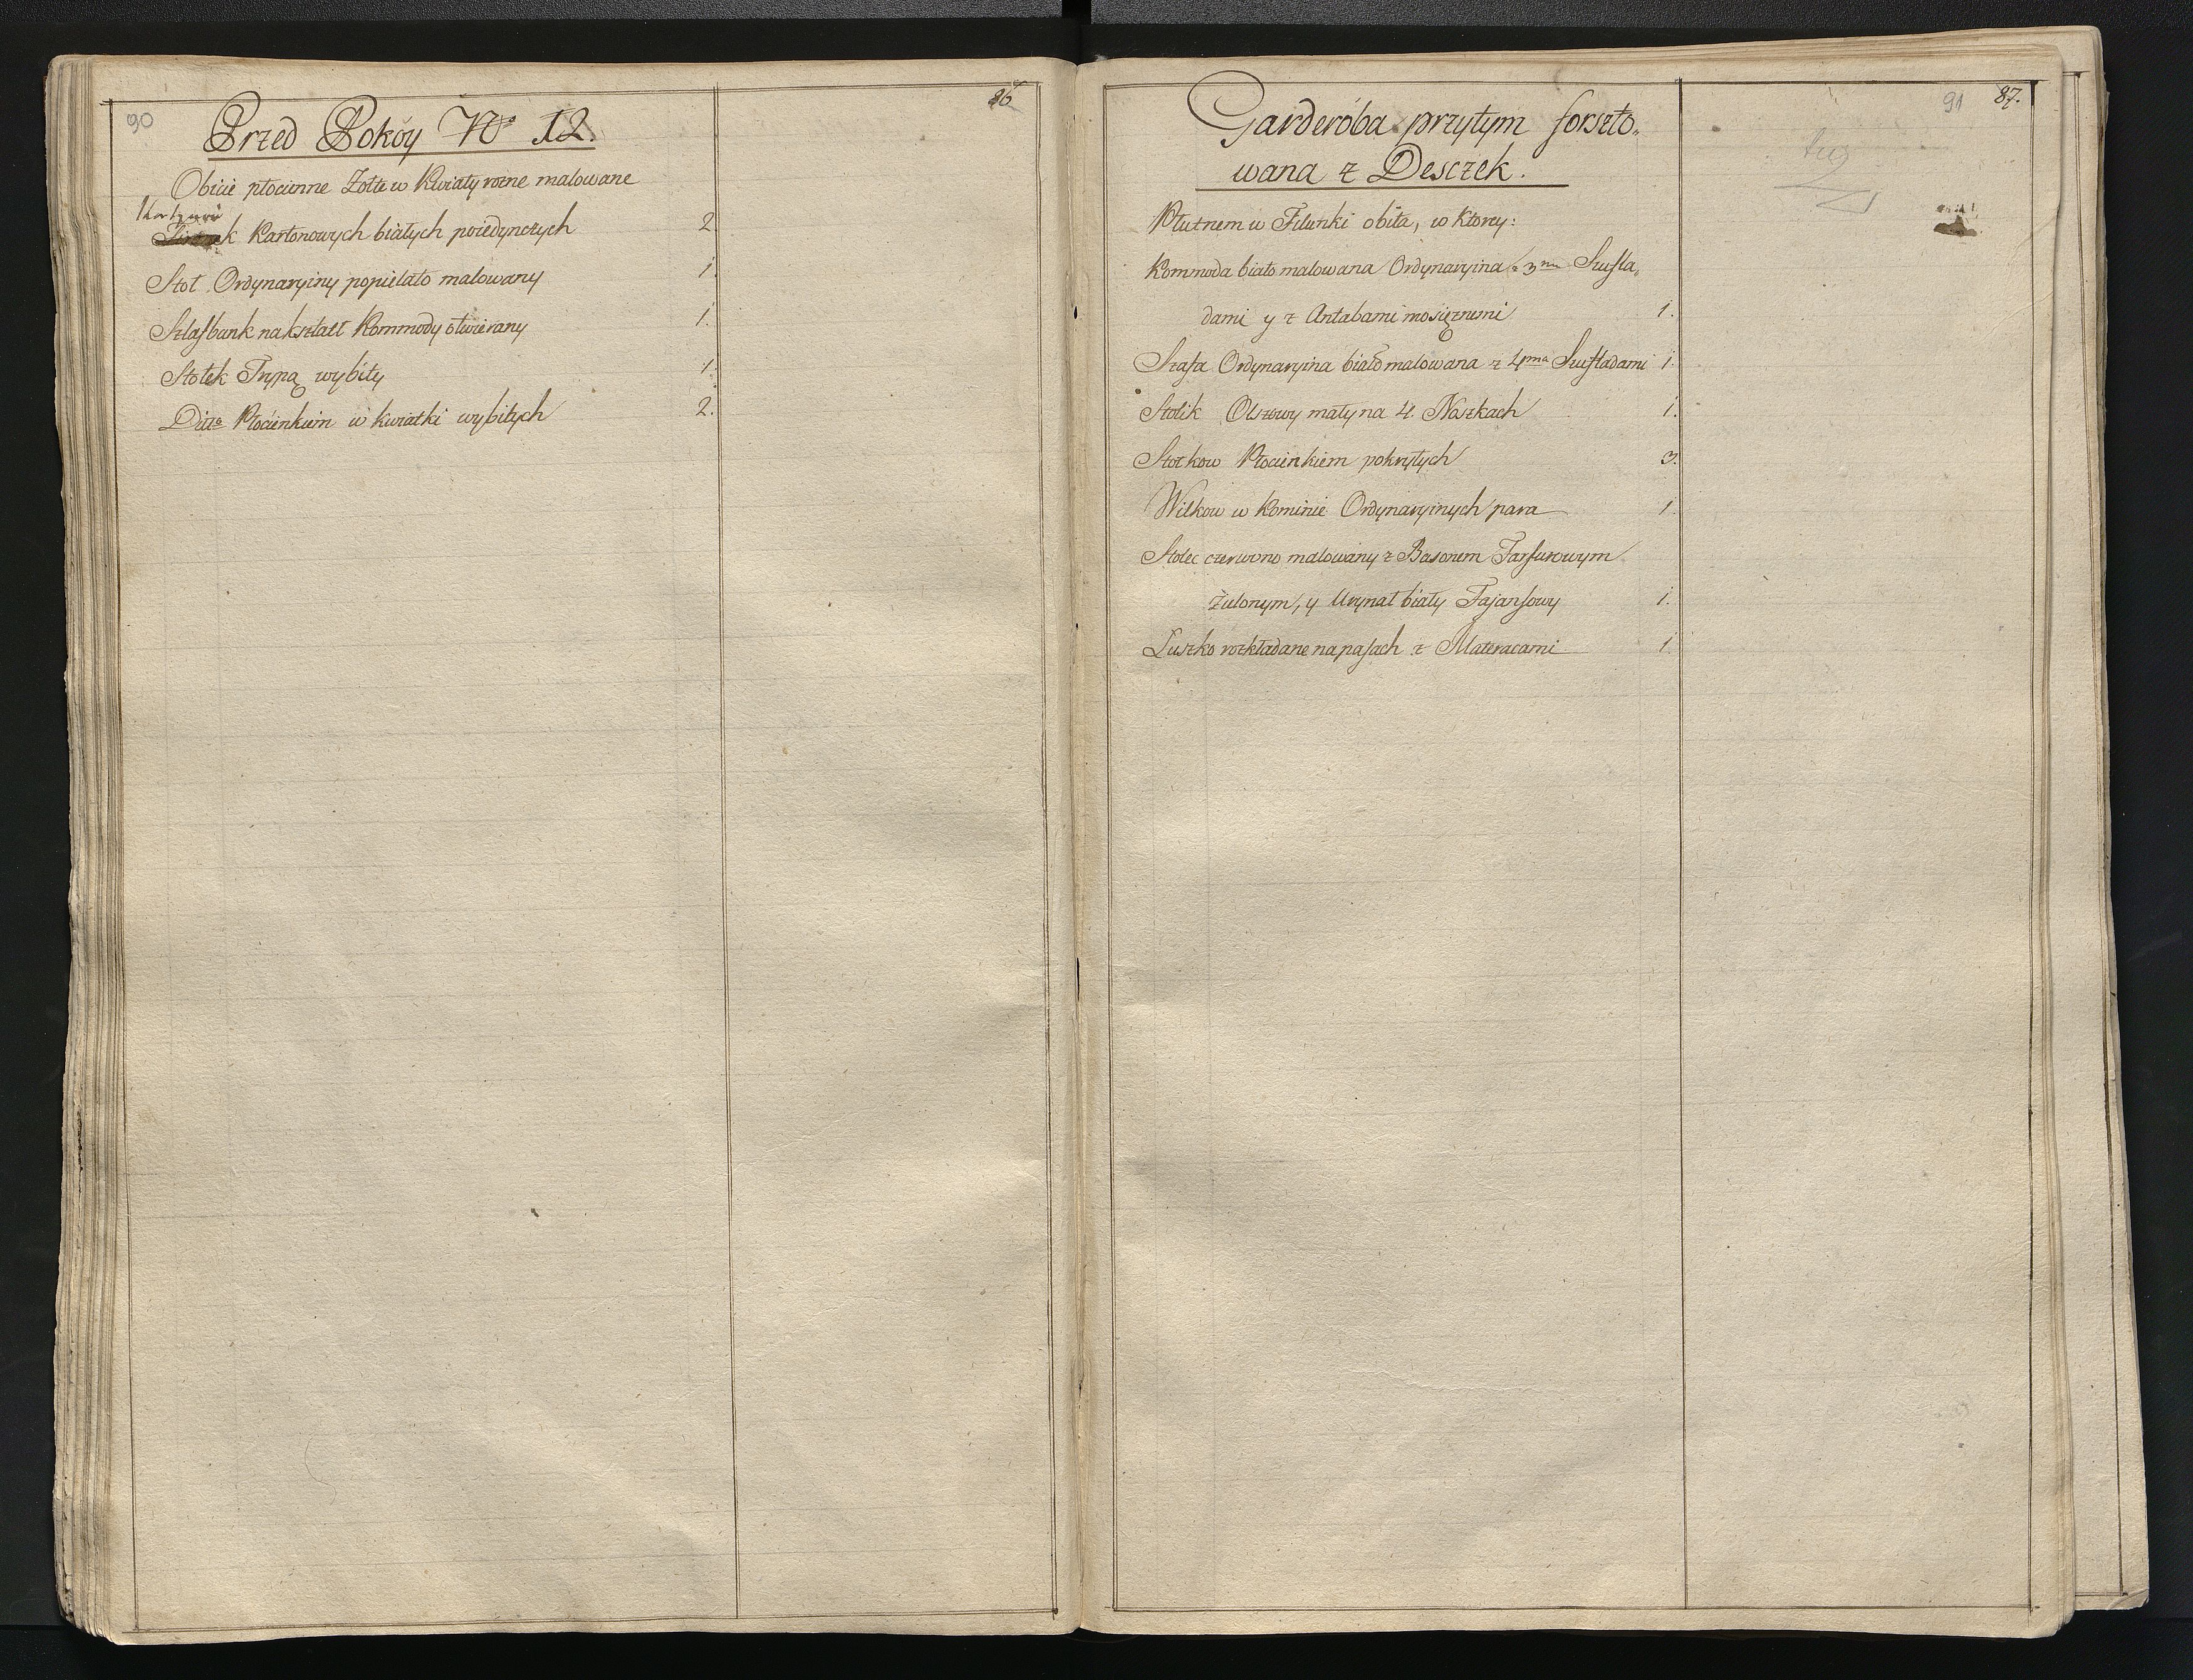 90
86
Przed Pokóy No 12.
Obicie płocienne Zołte w Kwiaty rozne malowane
Kortynow
Firanek Kartonowych białych poiedynczych 2
Stoł Ordynaryiny popielato malowany 1.
Szlafbank nakształt Kommody otwierany 1.
Stołek Trypą wybity 1.
Ditto Płocienkiem w kwiatki wybitych 2.
91 87.
Garderóba przytym forszto„
wana z Desczek.
Płutnem w Filunki obita, w Ktorey:
Kommoda biało malowana Ordynaryina z 3ma Szufla„
dami y z Antabami mosięznemi 1.
Szafa Ordynaryina biało malowana z 4ma Szufladami 1.
Stolik Olszowy mały na 4. Noszkach 1.
Stołkow Płocienkiem pokrytych 3.
Wilkow w Kominie Ordynaryinych para 1.
Stolec czerwono malowany z Basonem Farfurowym
Zielonym, y Urynał biały Fajansowy 1.
Łuszko rozkładane na pasach z Materacami 1.